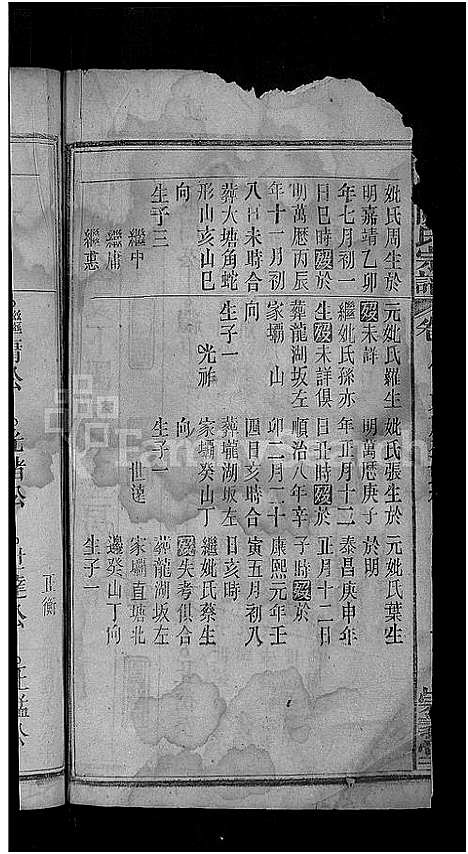 妣氏周生於
明嘉靖乙卯
年七月初一
日巳時歿於
明萬曆丙辰
年十一月初
八日未時合
葬大塘角蛇
形山亥山巳
向
生子三
繼中
繼庸
繼惠
元妣氏羅生
歿未詳
繼妣氏孫亦
生歿未詳俱
葬龍湖坂左
家壩 山
向
生子一
光祚
妣氏張生於
明萬曆庚子
年正月十二
日丑時歿於
順治八年辛
卯二月二十
四日亥時合
葬龍湖坂左
家壩癸山丁
向
生子一
世達
元妣氏葉生
於
泰昌庚申年
正月十二日
子時歿於
康熙元年壬
寅五月初八
日亥時
繼妣氏蔡生
歿失考俱合
葬龍湖坂左
家壩直塘北
邊癸山丁向
生子一
正衡
氏宗譜